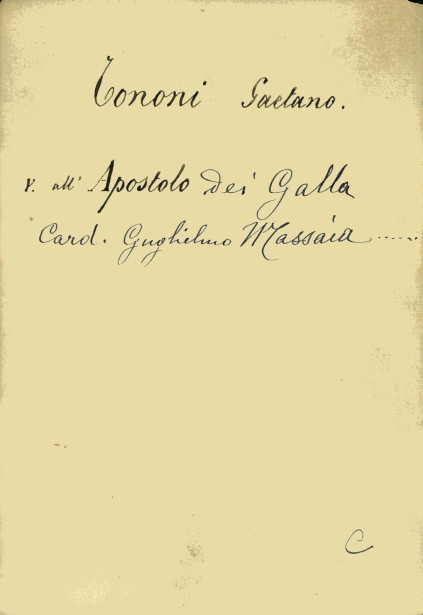 Tononi Gaetano.
v. all' Apostolo dei Galla
Card. Guglielmo Massaia ......
C